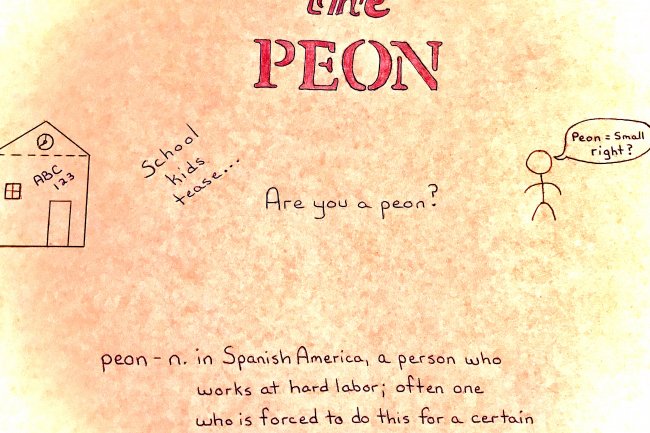 the
PEON
School
kids
tease...
ABC
123
Peon = Small
right?
Are you a peon?
peon - n. in Spanish America, a person who
works at hard labor; often one
who is forced to do this for a certain